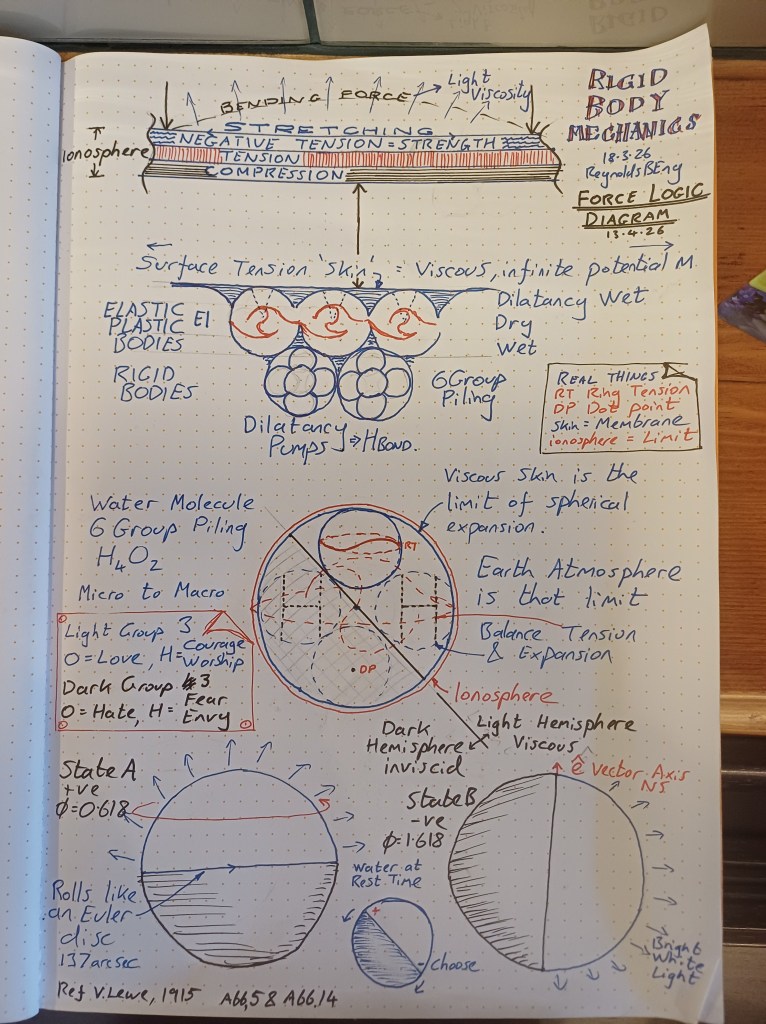 RIGID
BODY
MECHANICS
18.3.26
Reynolds BEng
FORCE LOGIC
DIAGRAM
13.4.26
Light
Viscosity
BENDING FORCE
STRETCHING
NEGATIVE TENSION = STRENGTH
TENSION
COMPRESSION
Ionosphere
Surface Tension 'skin' = Viscous, infinite potential M.
ELASTIC
PLASTIC EI
BODIES
Dilatancy Wet
Dry
Wet
RIGID
BODIES
6 Group
Piling
Dilatancy
Pumps => HBOND.
REAL THINGS
RT Ring Tension
DP Dot point
skin = Membrane
ionosphere = Limit
Viscous Skin is the
limit of spherical
expansion.
Water Molecule
6 Group Piling
H4O2
Micro to Macro
RT
DP
Earth Atmosphere
is that limit
Balance Tension
& Expansion
Ionosphere
Light Group 3
O = Love, H = Courage
Worship
Dark Group 3
O = Hate, H = Fear
Envy
Dark
Hemisphere
inviscid
Light Hemisphere
Viscous
State A
+ve
φ=0.618
Rolls like
an Euler
disc
137 arcsec
State B
-ve
φ=1.618
ê vector Axis
NS
water at
Rest Time
+
- choose
Bright
White
Light
Ref V. Lewe, 1915 Abb,58 Abb,14